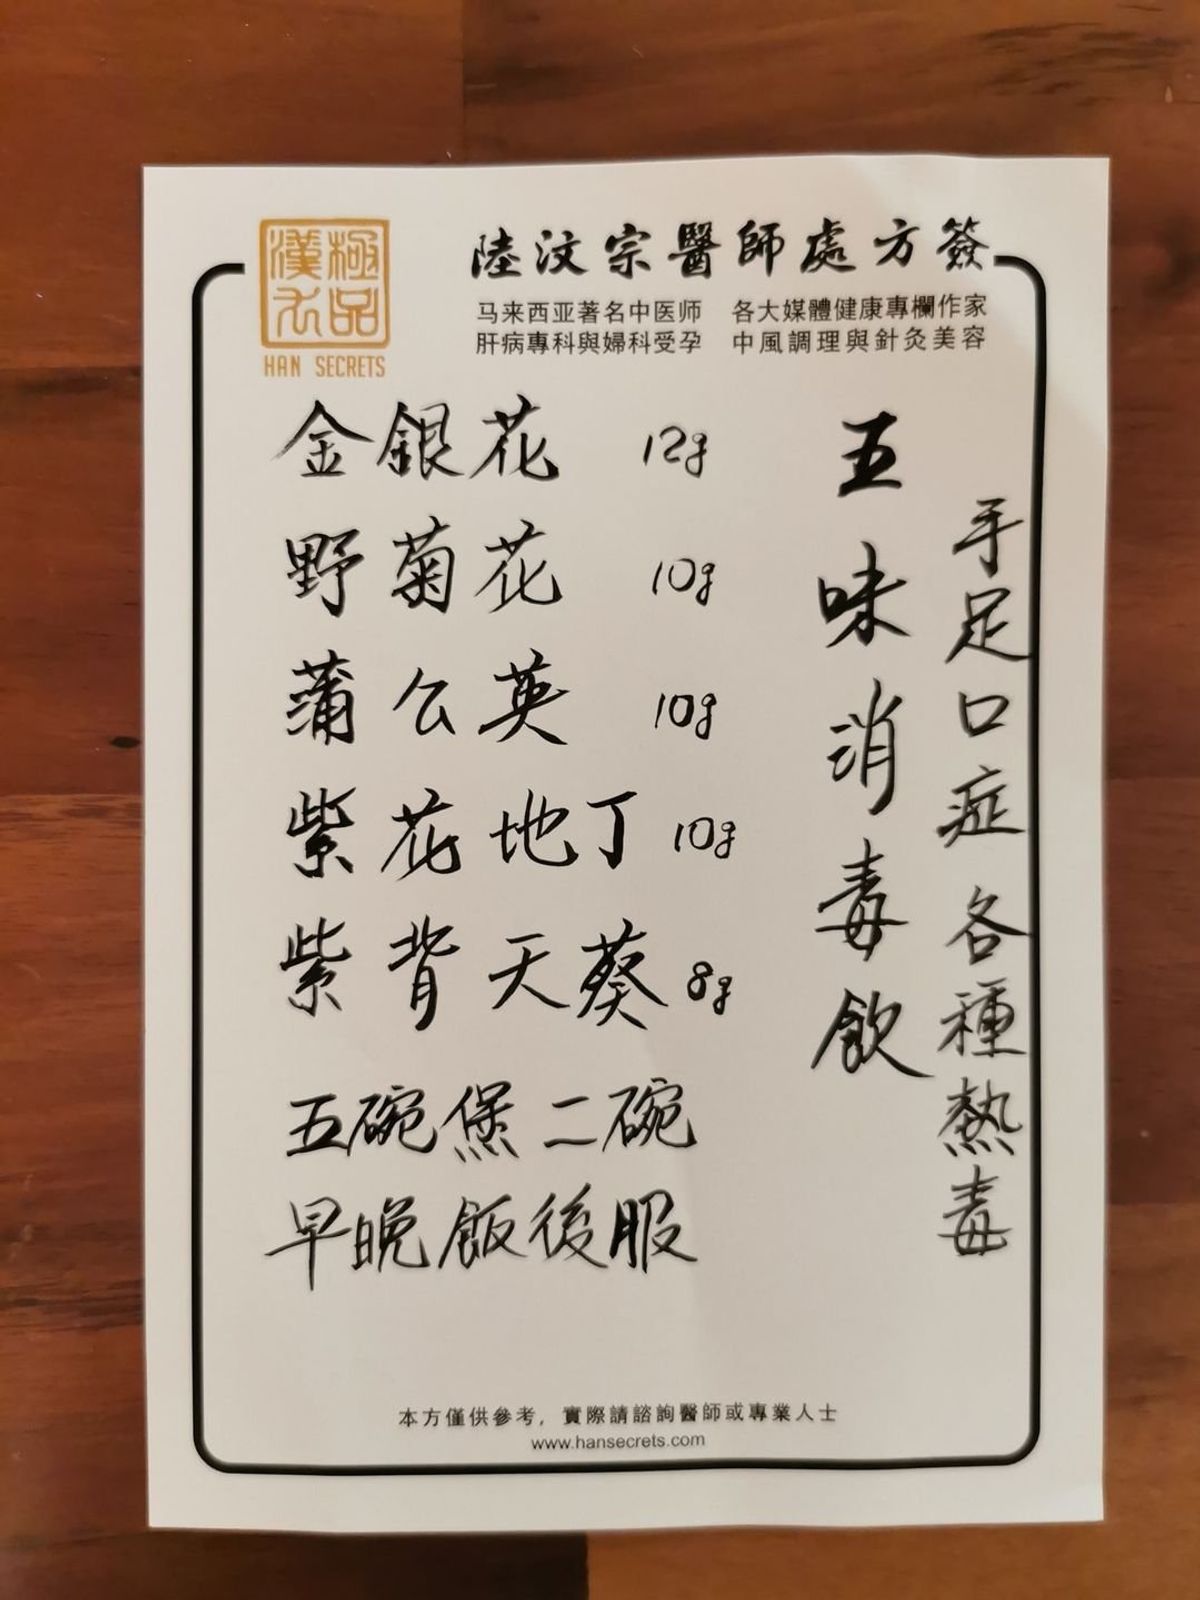 極品
漢方
HAN SECRETS
陸汶宗醫師處方簽
马来西亚著名中医师 各大媒體健康專欄作家
肝病專科與婦科受孕 中風調理與針灸美容
手足口症各種熱毒
五味消毒飲
金銀花 12g
野菊花 10g
蒲公英 10g
紫花地丁 10g
紫背天葵 8g
五碗煲二碗
早晚飯後服
本方僅供參考，實際請諮詢醫師或專業人士
www.hansecrets.com